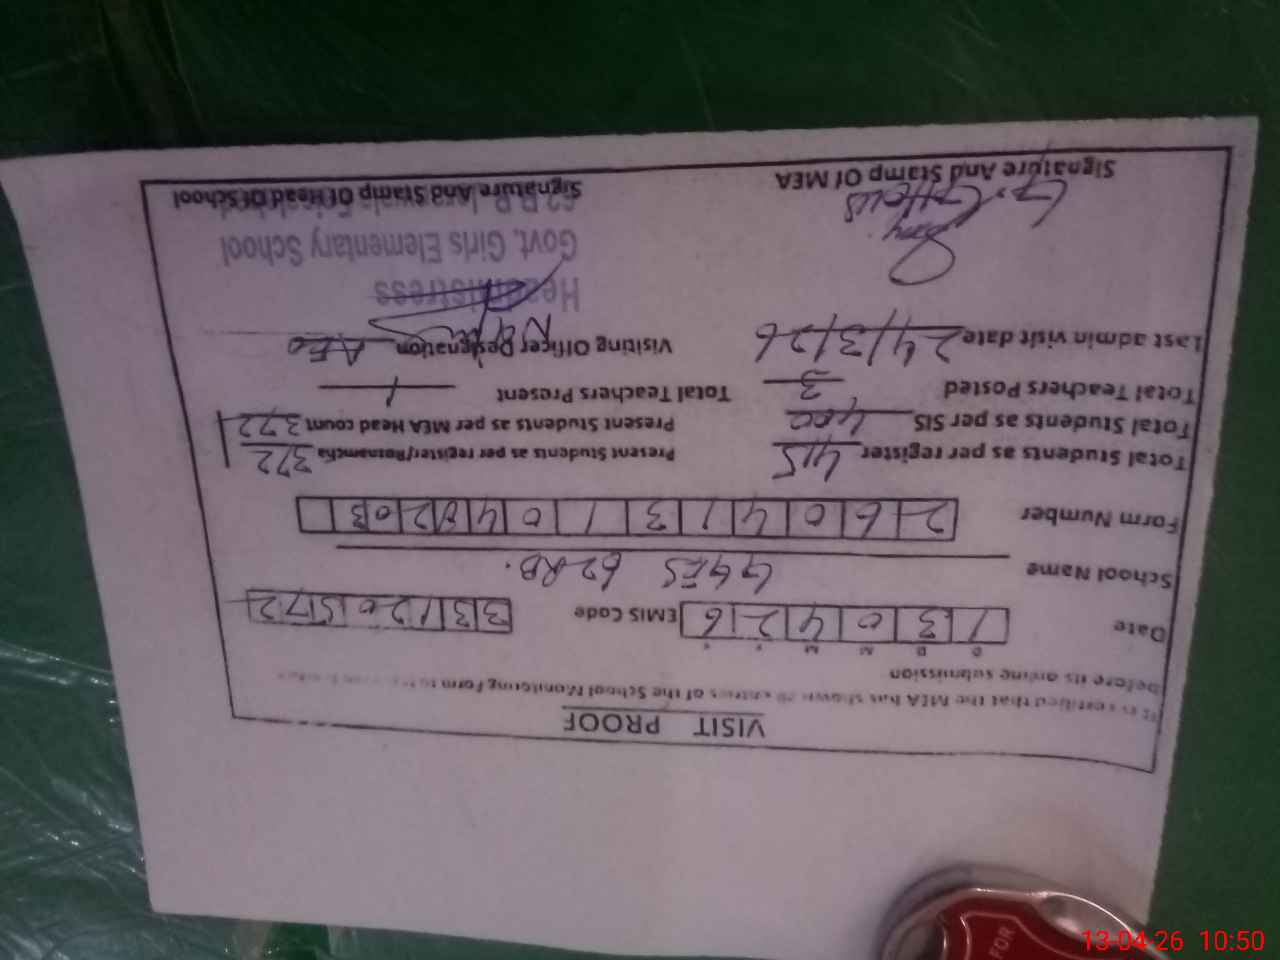 VISIT PROOF
It is certified that the MEA has shown all entries of the School Monitoring Form to
before its online submission
D D M M Y Y
Date 1 3 0 4 2 6 EMIS Code 3 3 1 2 0 5 7 2
School Name GGES 62 RB.
Form Number 2 6 0 4 1 3 1 0 4 0 2 0 3
Total Students as per register 415 Present Students as per register/Roznamcha 372
Total Students as per SIS 400 Present Students as per MEA Head count 372
Total Teachers Posted 3 Total Teachers Present 1
Last admin visit date 24/3/26 Visiting Officer Designation AEO
Headmistress
Govt. Girls Elementary School
62 R.B.
G. Ghous
Signature And Stamp Of MEA Signature And Stamp Of Head Of School
FOR
13-04-26 10:50